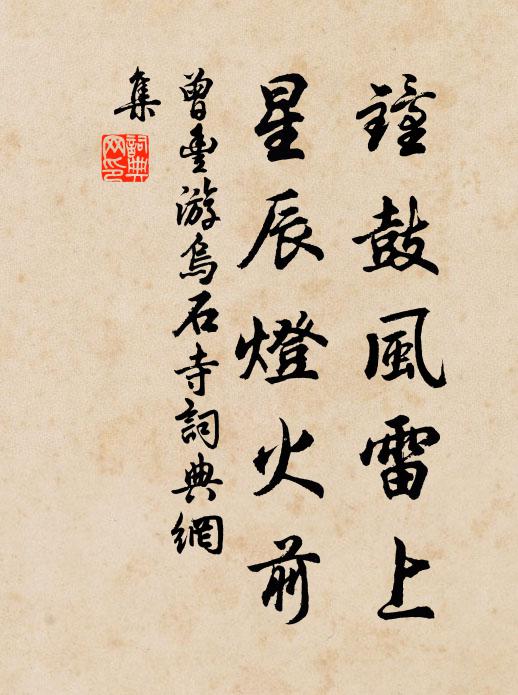 鐘鼓風雷上
星辰燈火前
曾豐游烏石寺詞典網
集
詞典
网印